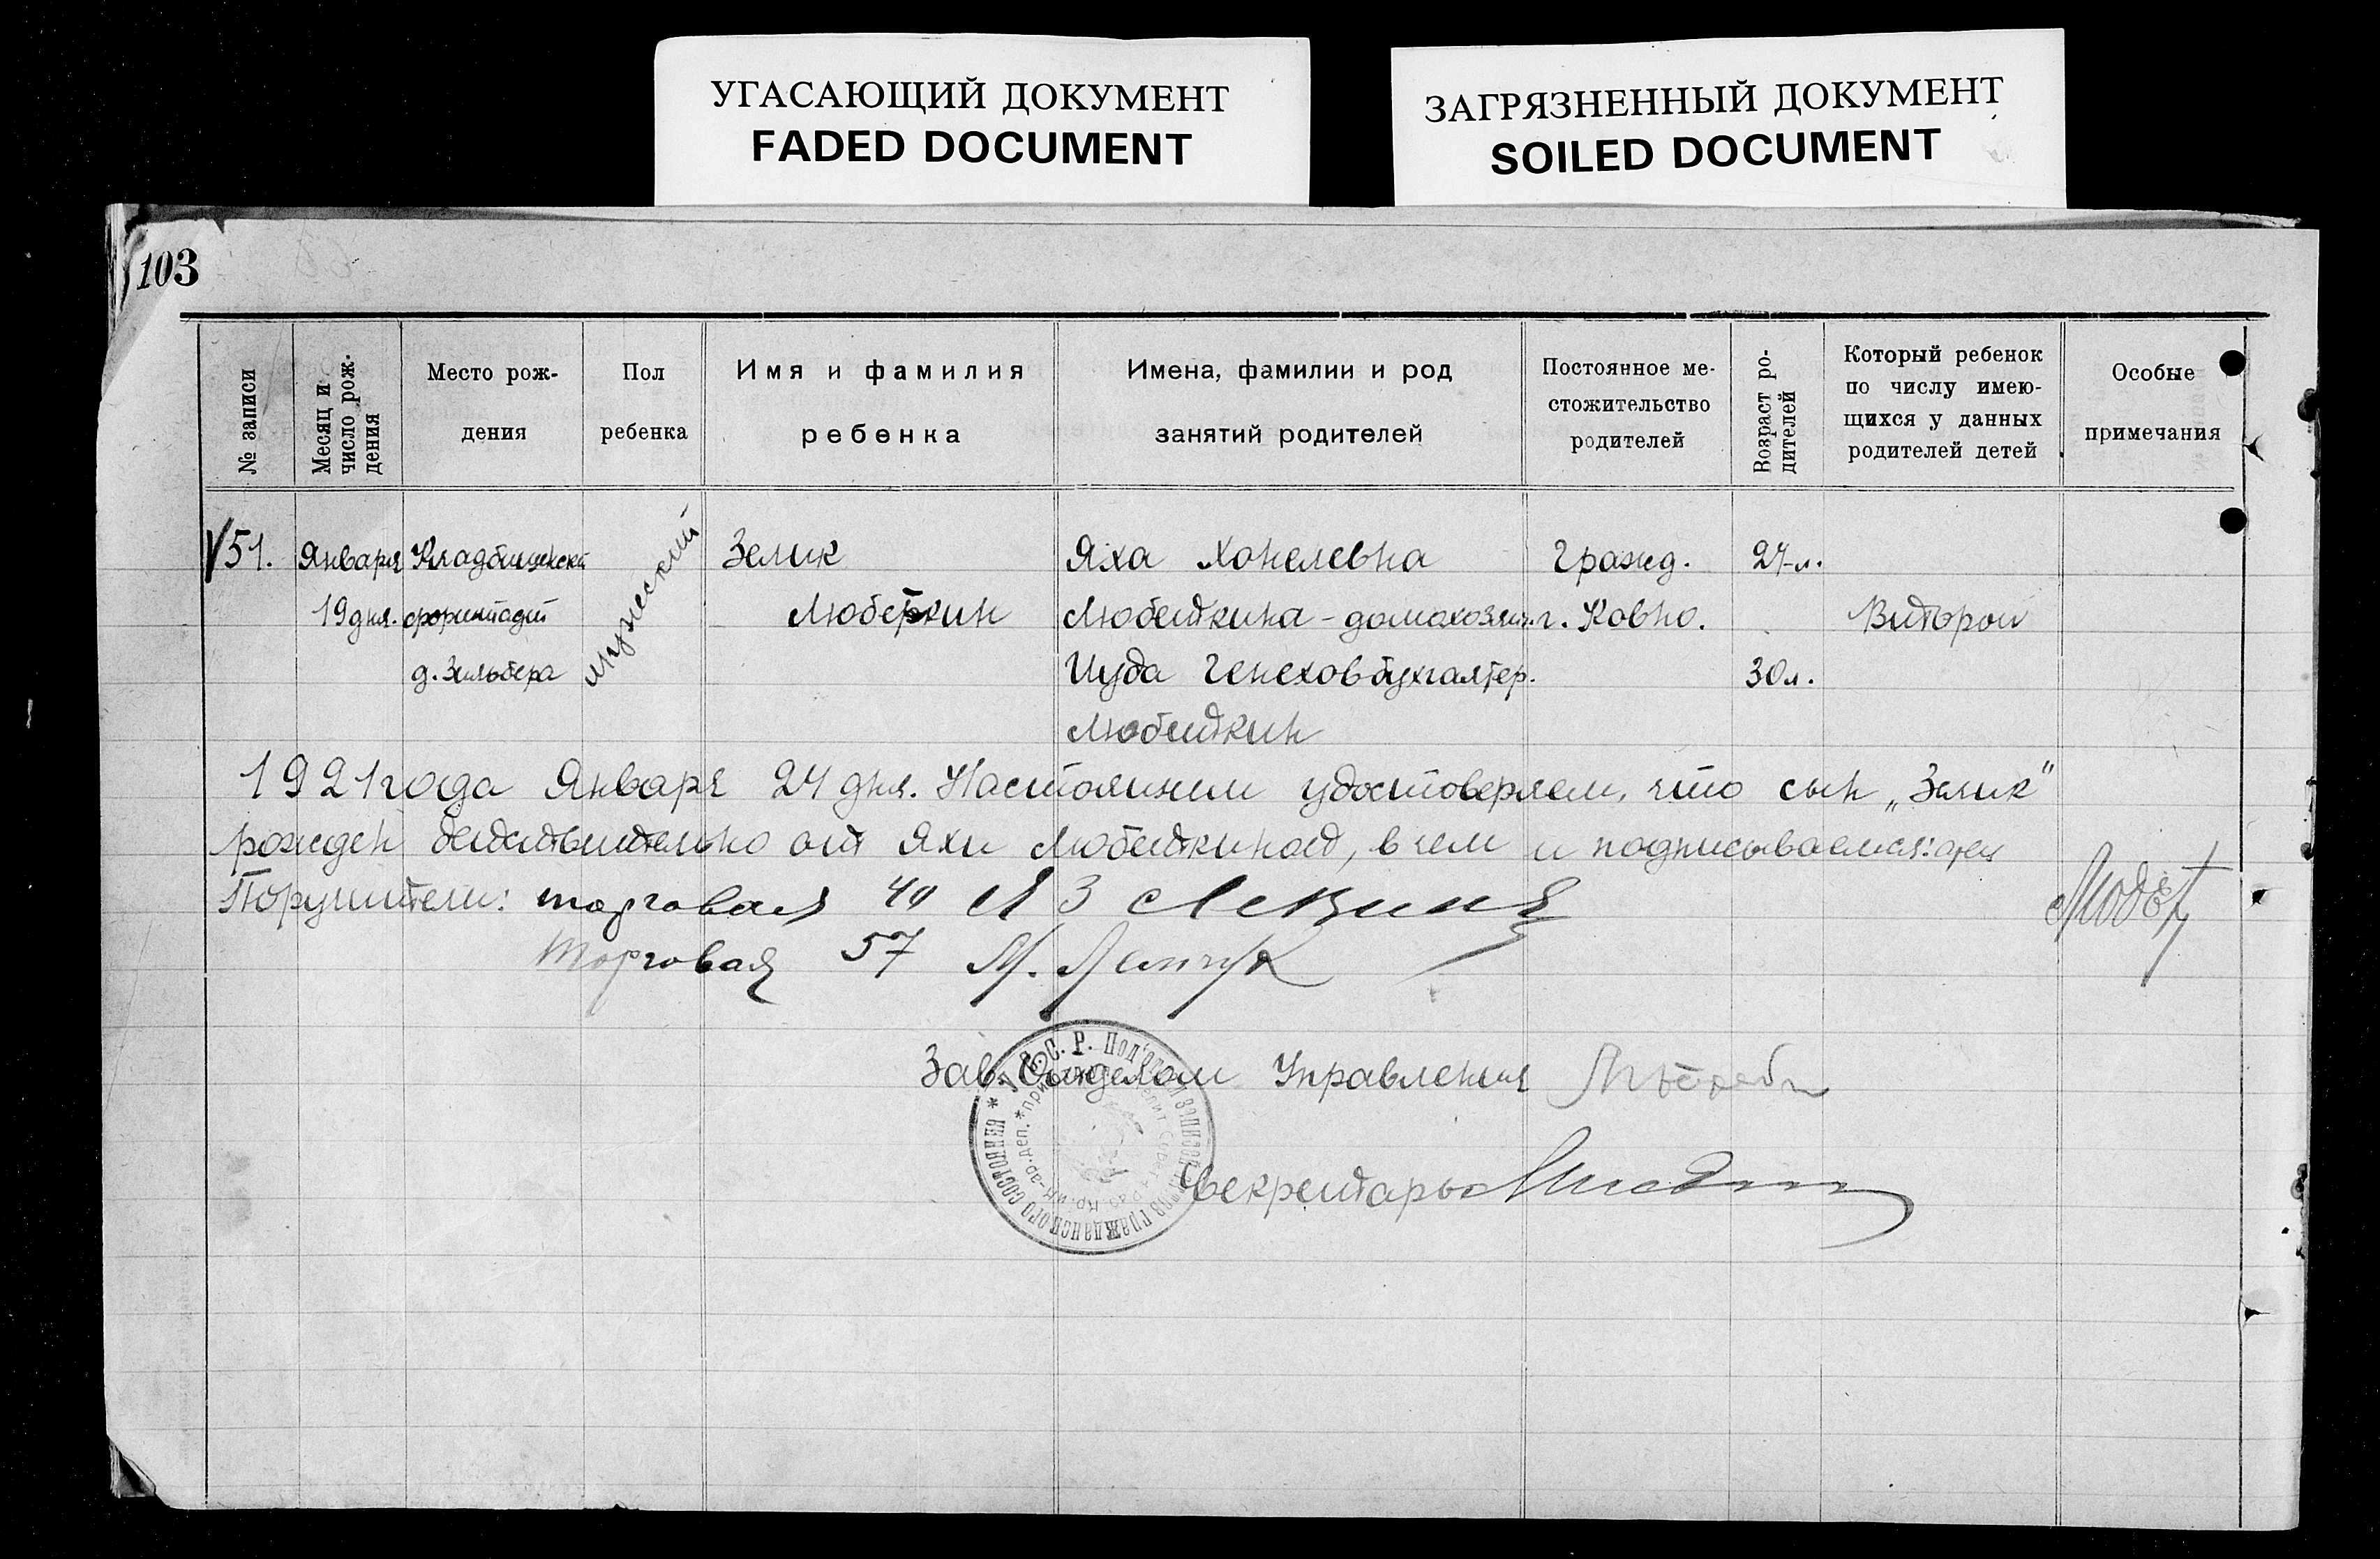 УГАСАЮЩИЙ ДОКУМЕНТ
FADED DOCUMENT
ЗАГРЯЗНЕННЫЙ ДОКУМЕНТ
SOILED DOCUMENT
103
№ записи
Месяц и число рож-дения
Место рож-
дения
Пол
ребенка
Имя и фамилия
ребенка
Имена, фамилии и род
занятий родителей
Постоянное ме-
стожительство
родителей
Возраст ро-
дителей
Который ребенок
по числу имею-
щихся у данных
родителей детей
Особые
примечания
51.
Января
19 дня.
д. Зильбера
мужеский
Зелик
Яха Хонелевна
Любеткина - домохозяич.
Иуда Генехов бухгалтер.
Любеткин
Гражд.
г. Ковно.
27 л.
30 л.
Второй
1921 года Января 24 дня. Настоящим удостоверяем, что сын „Зелик"
рожден действительно от Яхи Любеткиной, в чем и подписываемся:
Поручители: торговая 40
Торговая 57 М.
Зав. Отделом Управления
Секретарь